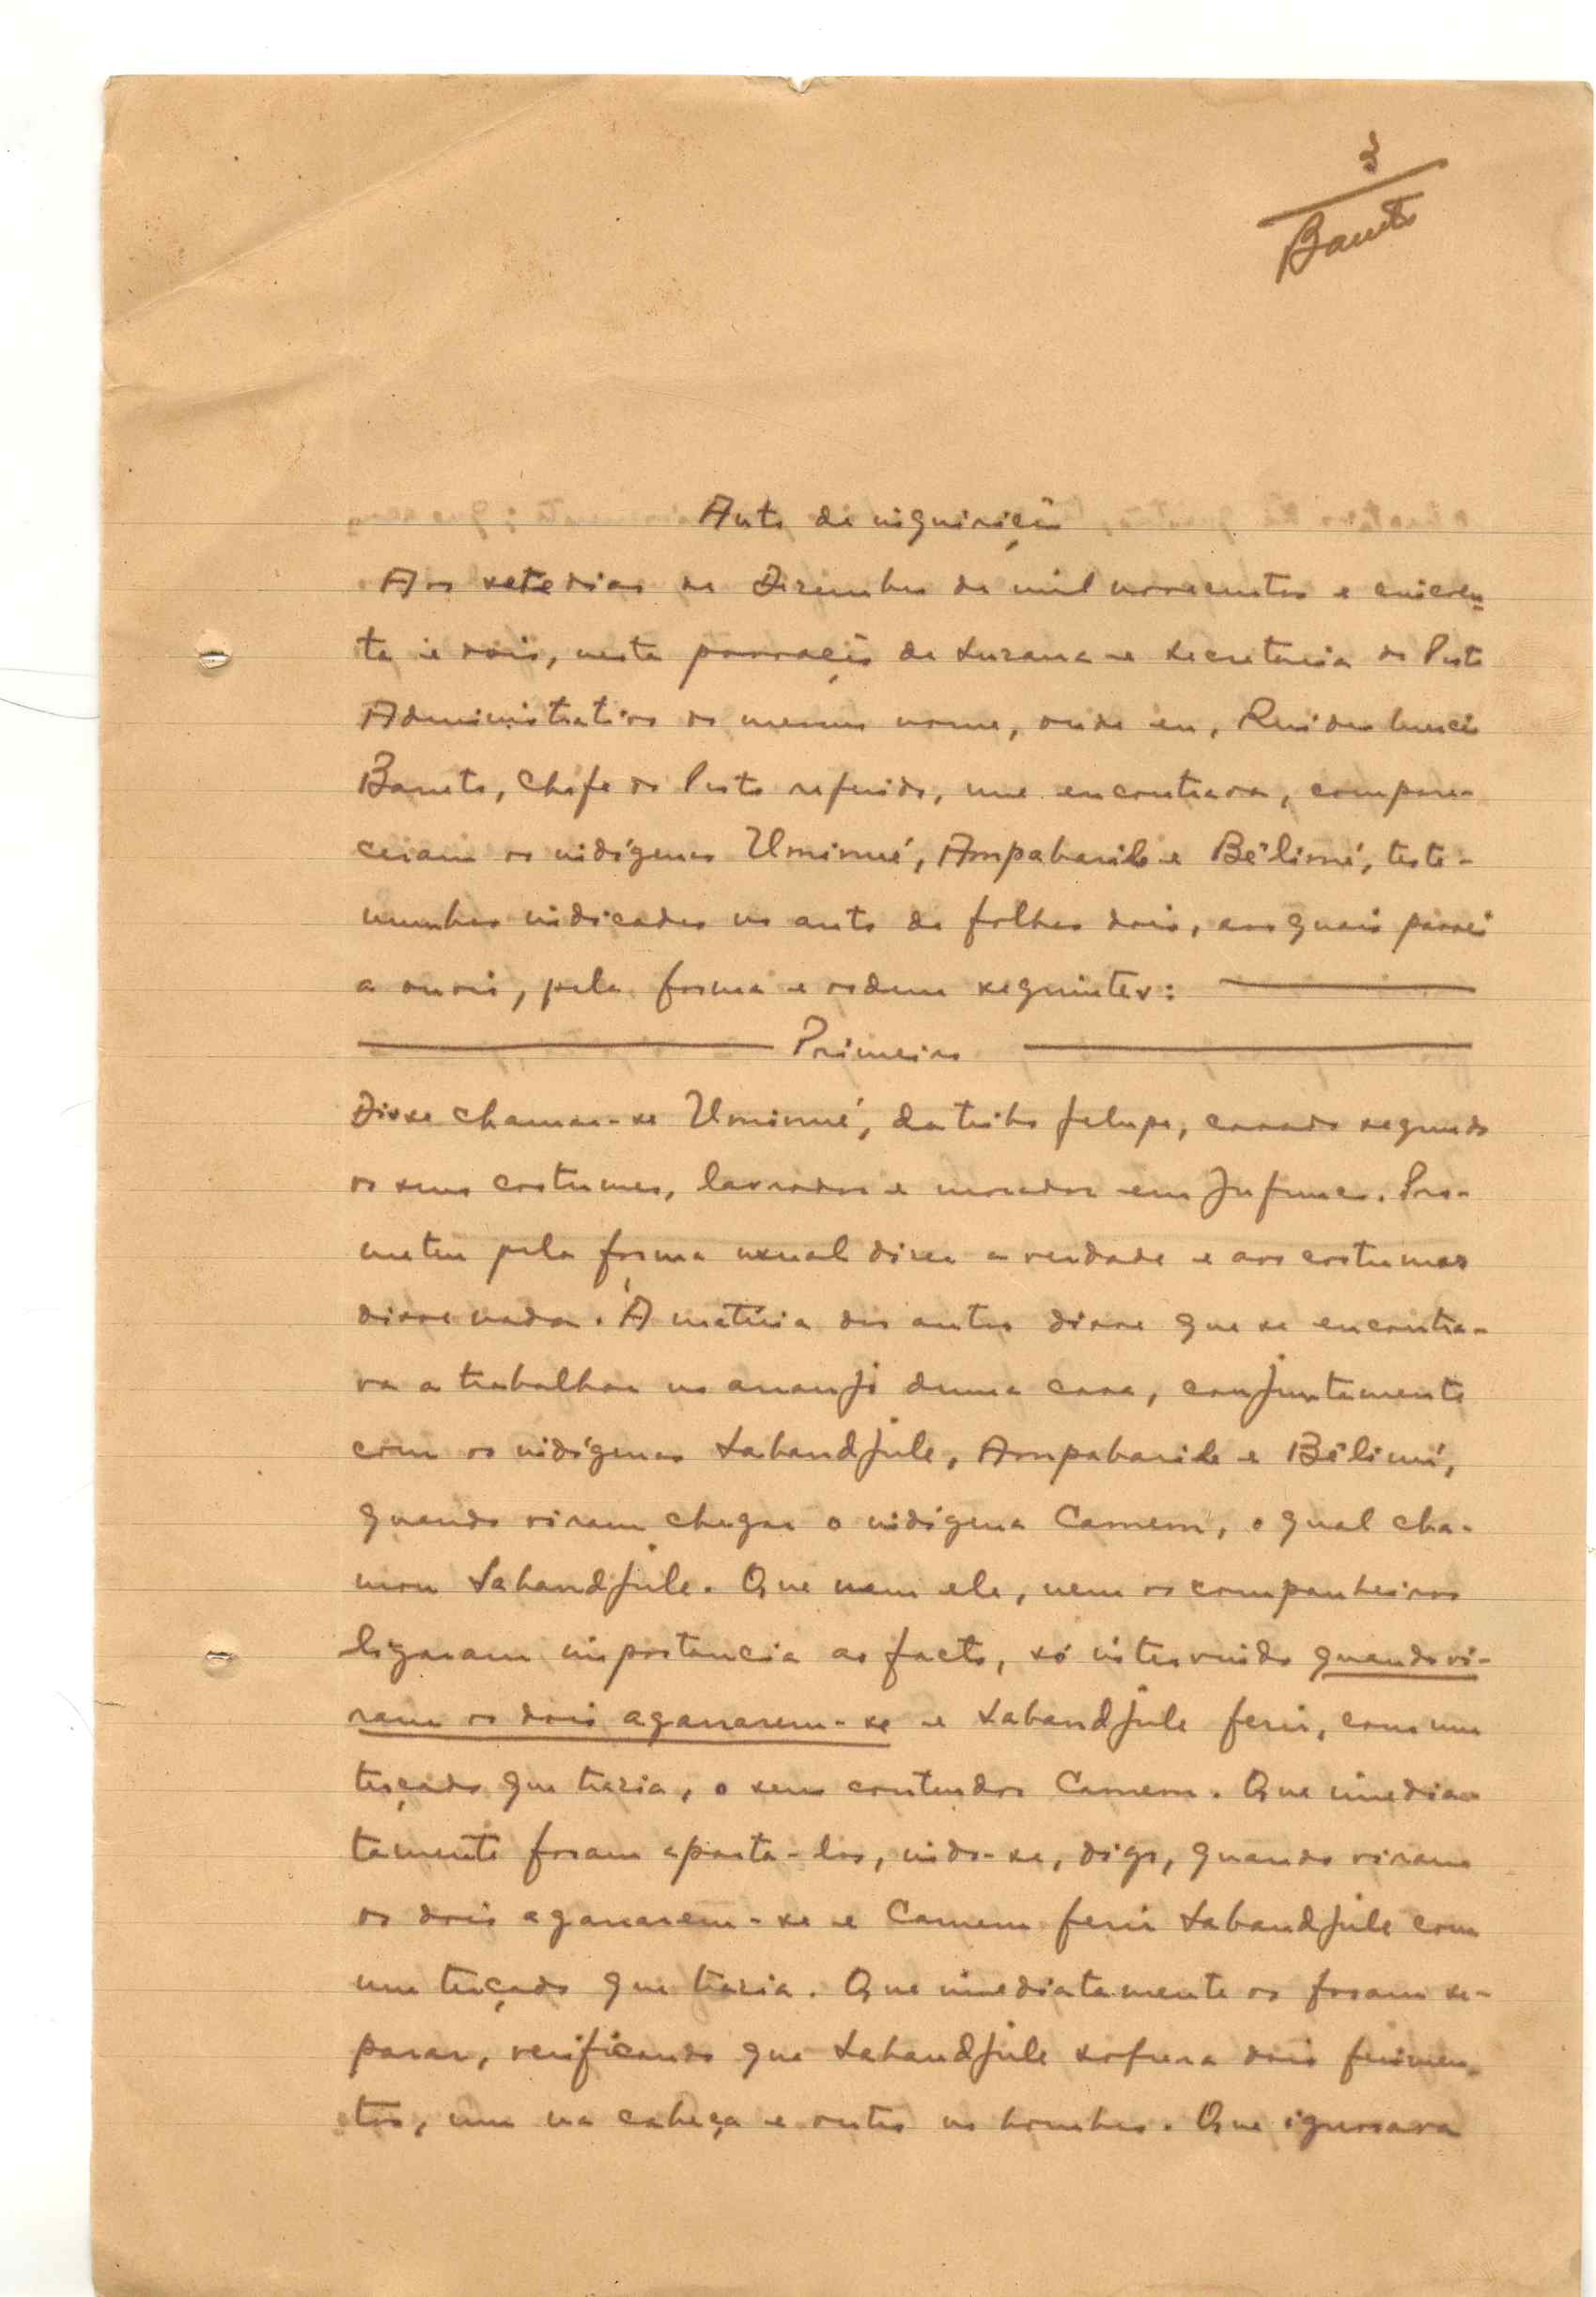 3
Barreto
Auto de inquirição
Aos sete dias de Dezembro de mil novecentos e cincoen-
ta e dois, nesta povoação de Suzana e Secretaria do Posto
Administrativo do mesmo nome, onde eu, Rui
Barreto, Chefe do Posto referido, me encontrava, compare-
ceram os indígenas Umimué, Ampabarile e Bélimé, teste-
munhas indicadas no auto de folhas dois, aos quais passei
a ouvir, pela forma e ordem seguintes:
Primeiro
Disse chamar-se Umimué, da tribo felupe, casado segundo
os seus costumes, lavrador e morador em Jufunco. Pro-
meteu pela forma usual dizer a verdade e aos costumes
disse nada. Á matéria dos autos disse que se encontra-
va a trabalhar no arranjo duma casa, conjuntamente
com os indígenas Sabandjule, Ampabarile e Bélimé,
quando viram chegar o indígena Camem, o qual cha-
mou Sabandjule. Que nem ele, nem os companheiros
ligaram importancia ao facto, só intervindo quando vi-
ram os dois agarrarem-se e Sabandjule ferir, com um
terçado que trazia, o seu contendor Camem. Que imedia-
tamente foram aparta-los, indo-se, digo, quando viram
os dois agarrarem-se e Camem ferir Sabandjule com
um terçado que trazia. Que imediatamente os foram se-
parar, verificando que Sabandjule sofrera dois ferimen-
tos, um na cabeça e outro no hombro. Que ignorava